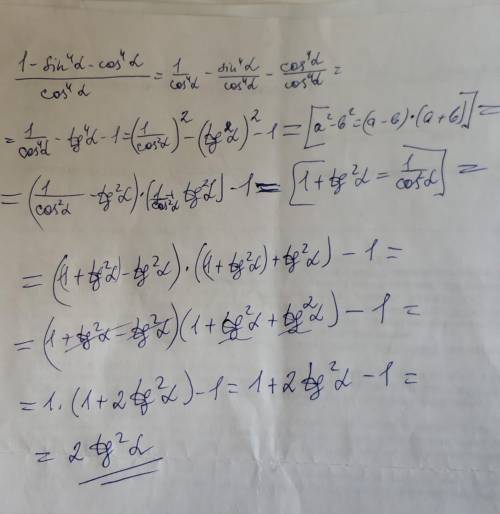 (1 - sin⁴α - cos⁴α)/cos⁴α = 1/cos⁴α - sin⁴α/cos⁴α - cos⁴α/cos⁴α =
= 1/cos⁴α - tg⁴α - 1 = (1/cos²α)² - (tg²α)² - 1 = [a² - b² = (a - b)·(a + b)] =
= (1/cos²α - tg²α)·(1/cos²α + tg²α) - 1 = [1 + tg²α = 1/cos²α] =
= ((1 + tg²α) - tg²α)·((1 + tg²α) + tg²α) - 1 =
= (1 + tg²α - tg²α)(1 + tg²α + tg²α) - 1 =
= 1·(1 + 2tg²α) - 1 = 1 + 2tg²α - 1 =
= 2tg²α